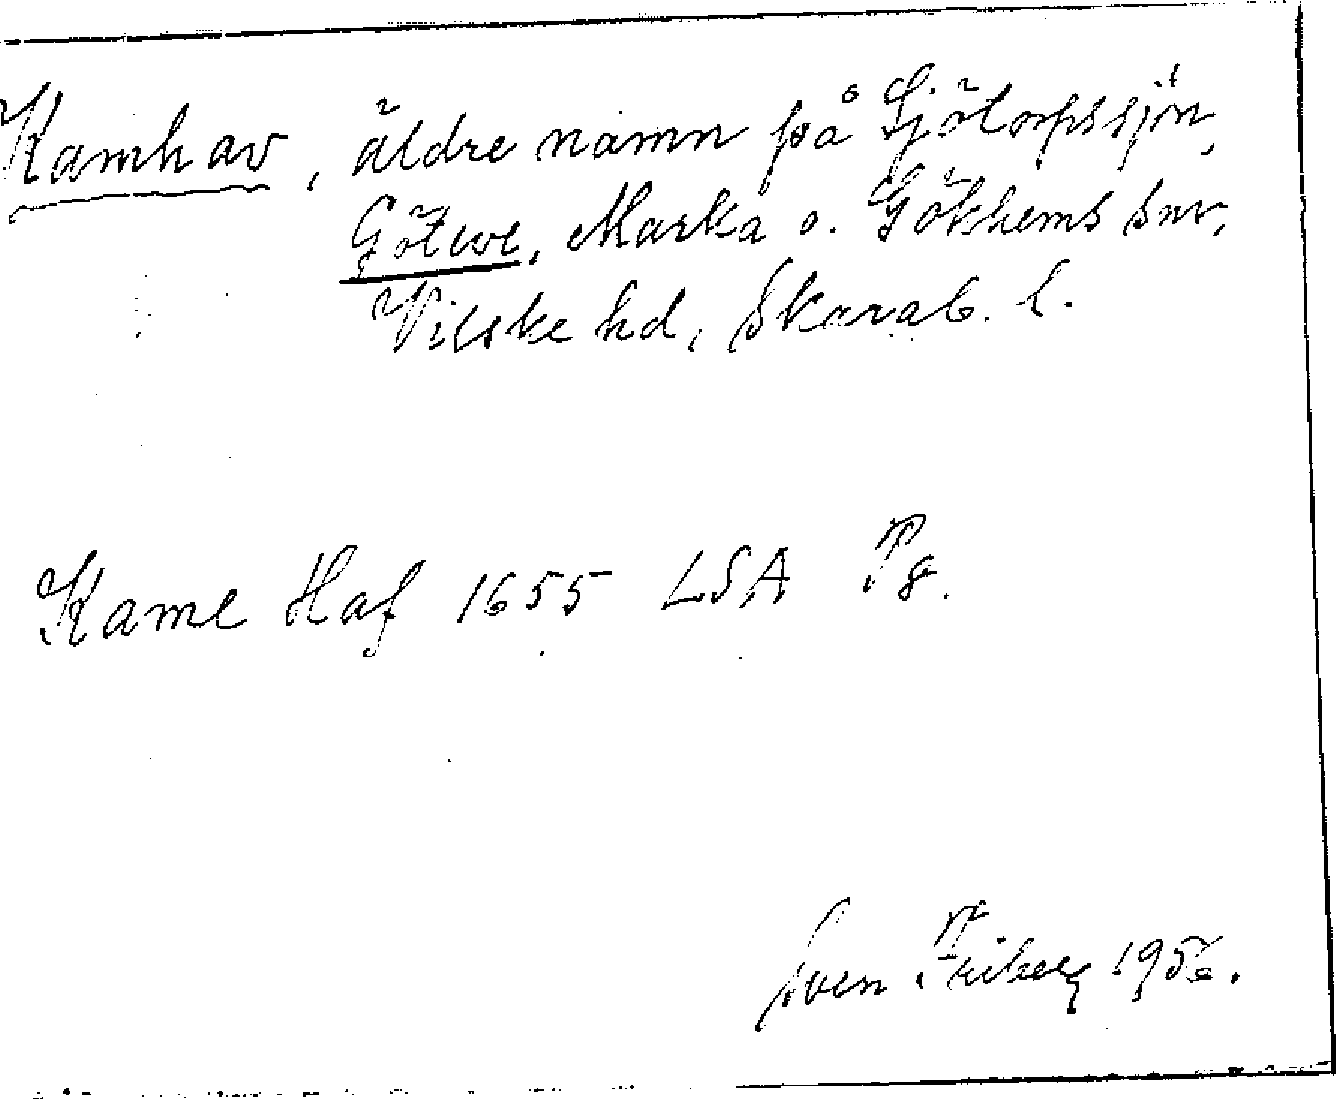 Kamhav, äldre namn på Sjötorpssjön,
Göteve, Marka o. Gökhems snr,
Vilske hd, Skarab. l.
Kame Haf 1655 LSA P8.
Sven Friberg 1956.